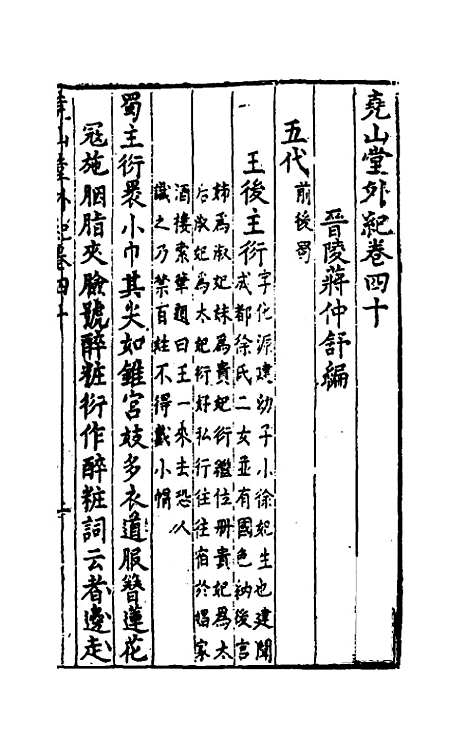 堯山堂外紀卷四十
晉陵蔣仲舒編
五代前後蜀
王後主衍字化源建幼子小徐妃生也建聞
成都徐氏二女並有國色納後言
姊爲淑妃妹爲貴妃衍繼位冊貴妃爲太
后淑妃爲太妃衍好私行往往宿於娼家
酒樓索筆題曰王一來去恐人
識之乃禁百姓不得戴小帽
蜀主衍裹小巾其尖如錐宮妓多衣道服簪蓮花
冠施胭脂夾臉號醉粧衍作醉粧詞云者邊走
堯山堂外紀卷四十
一